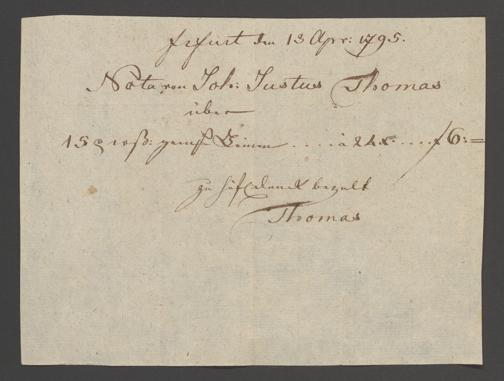 Erfurt den 13 Apr: 1795.
Nota von Joh: Justus Thomas
über
15 roß: ... à 24 x: .... f 6:=
zu ... Danck bezalt
Thomas